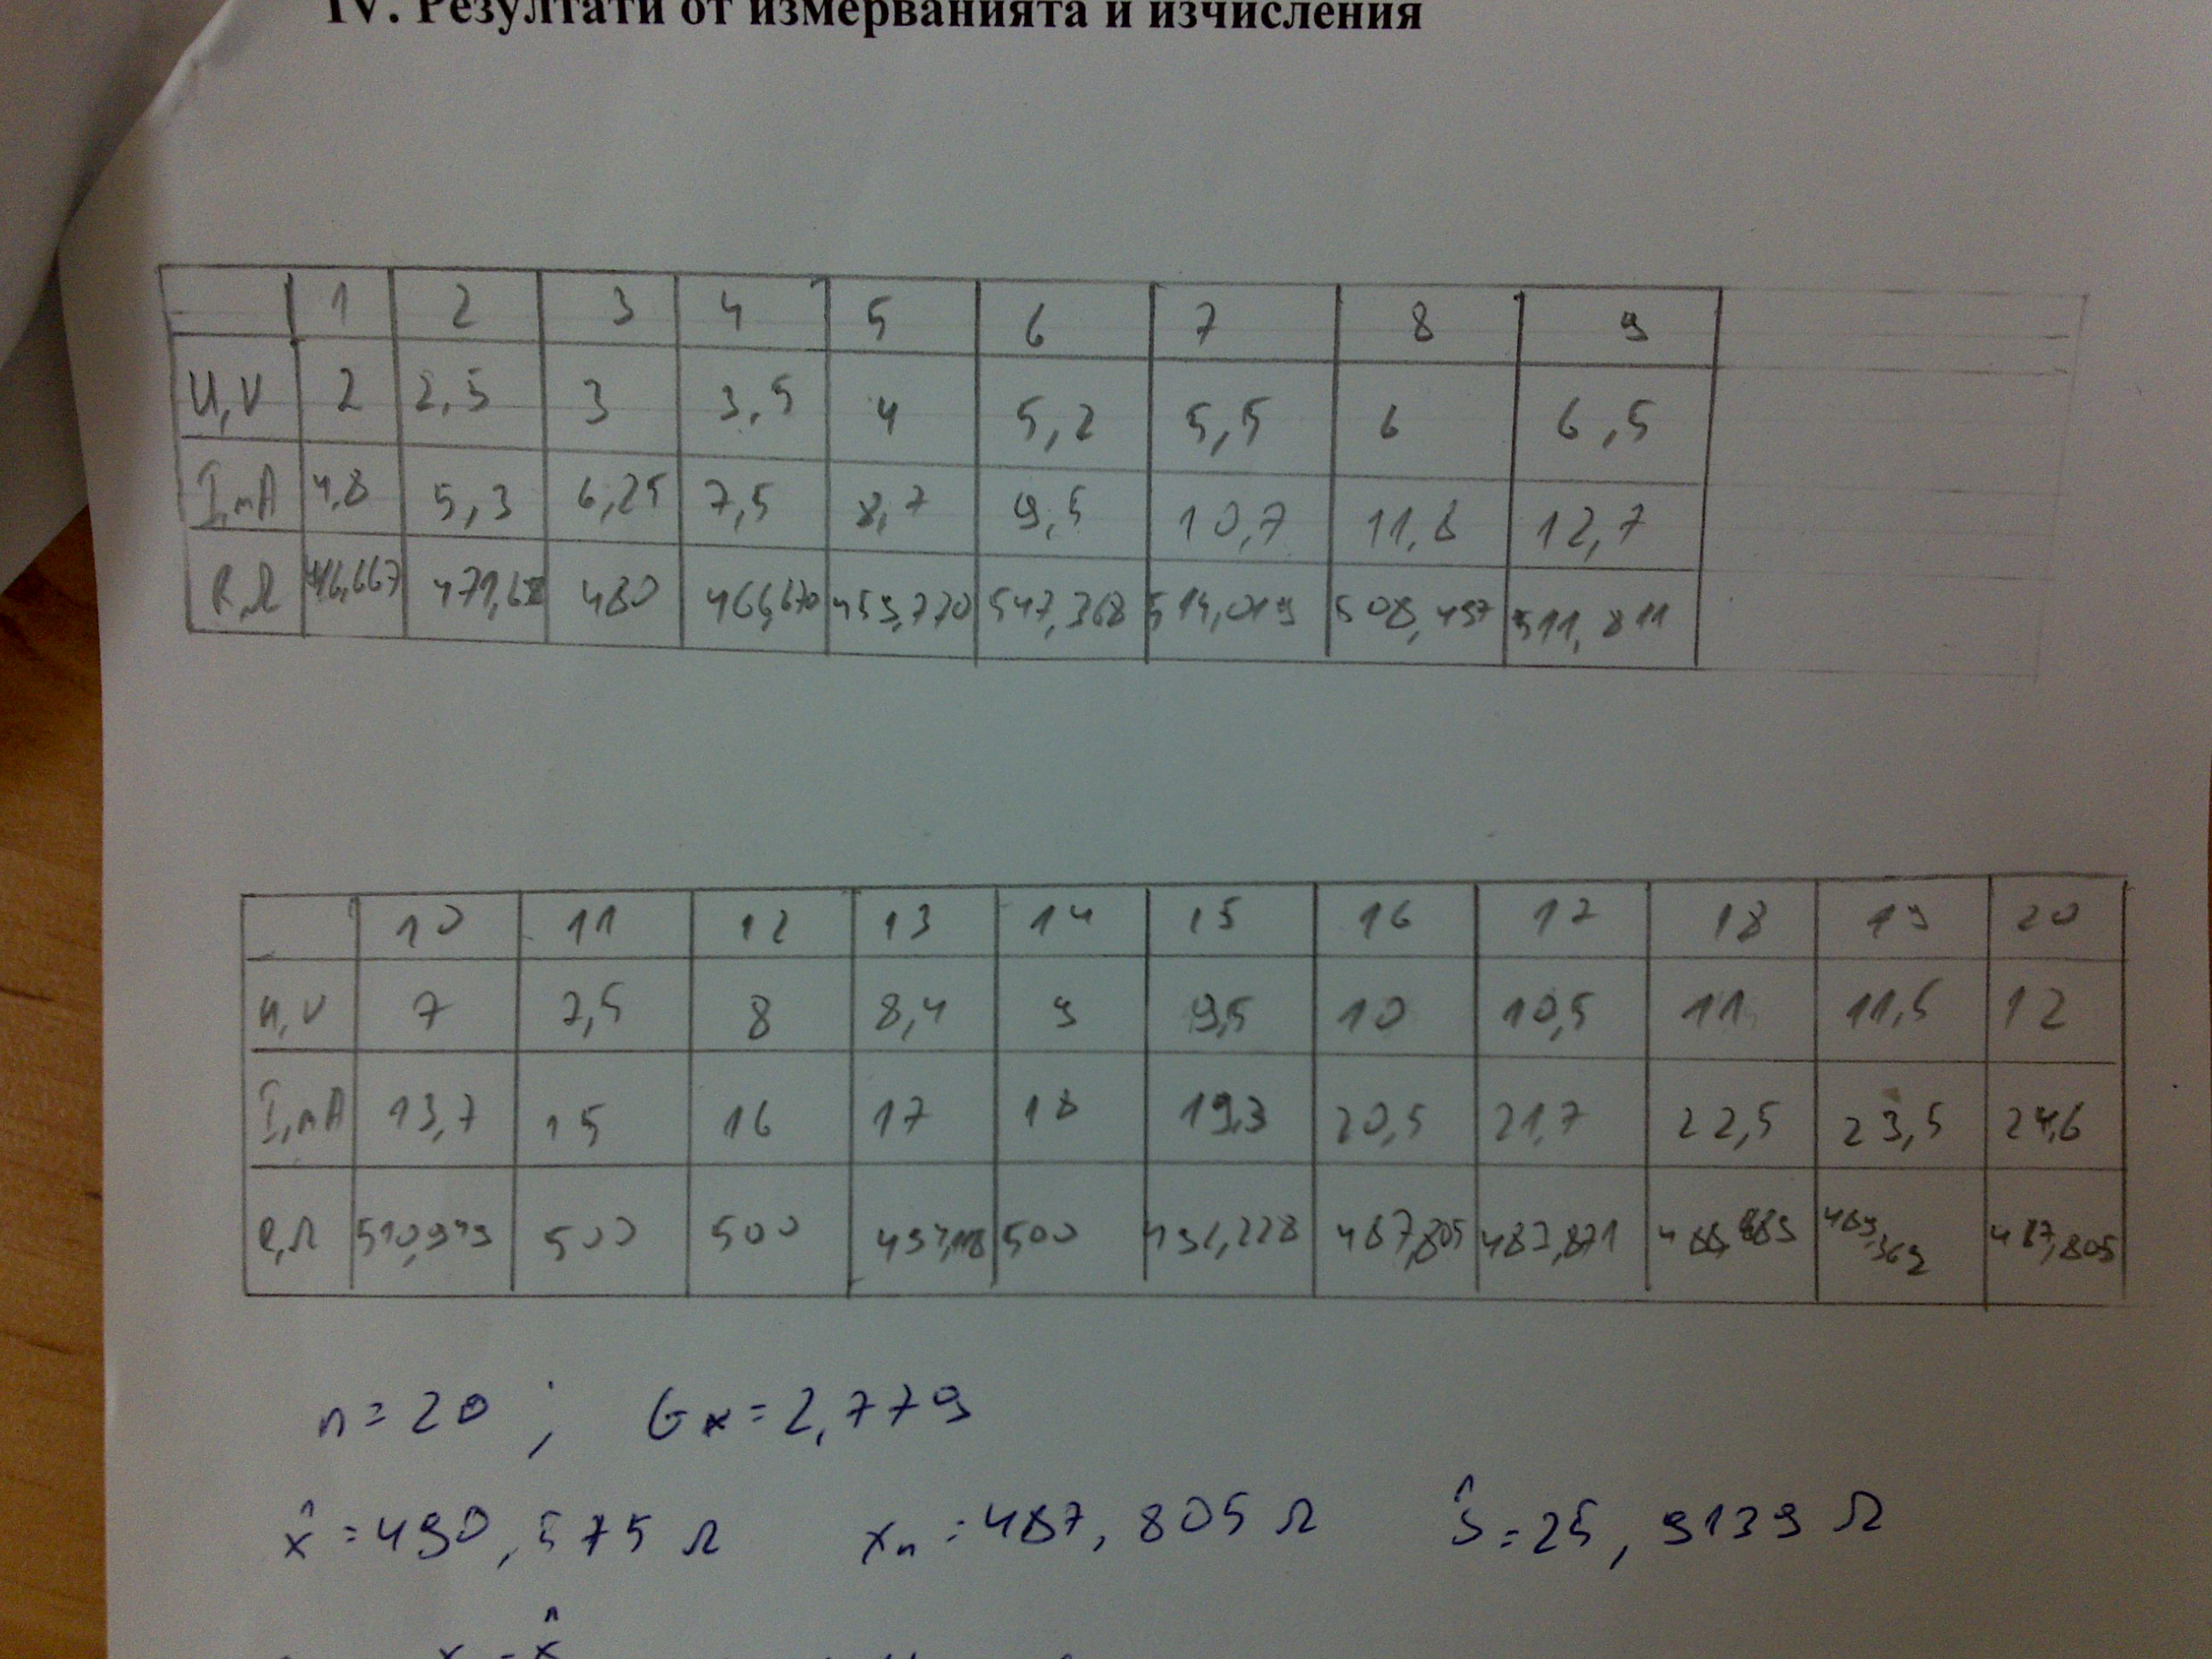 IV. Резултати от измерванията и изчисления
1 2 3 4 5 6 7 8 9
U,V 2 2,5 3 3,5 4 5,2 5,5 6 6,5
I,mA 4,8 5,3 6,25 7,5 8,7 9,5 10,7 11,8 12,7
R,Ω 416,667 480 466,670 459,770 547,368 514,019 508,497 511,811
10 11 12 13 14 15 16 17 18 19 20
U,V 7 7,5 8 8,4 9 9,5 10 10,5 11 11,5 12
I,mA 13,7 15 16 17 18 19,3 20,5 21,7 22,5 23,5 24,6
R,Ω 510,949 500 500 494,118 500 492,228 487,805 483,871 488,889 489,369 487,805
n=20 ; Gx=2,779
x̂=490,575 Ω xₙ=487,805 Ω ŝ=25,9139 Ω